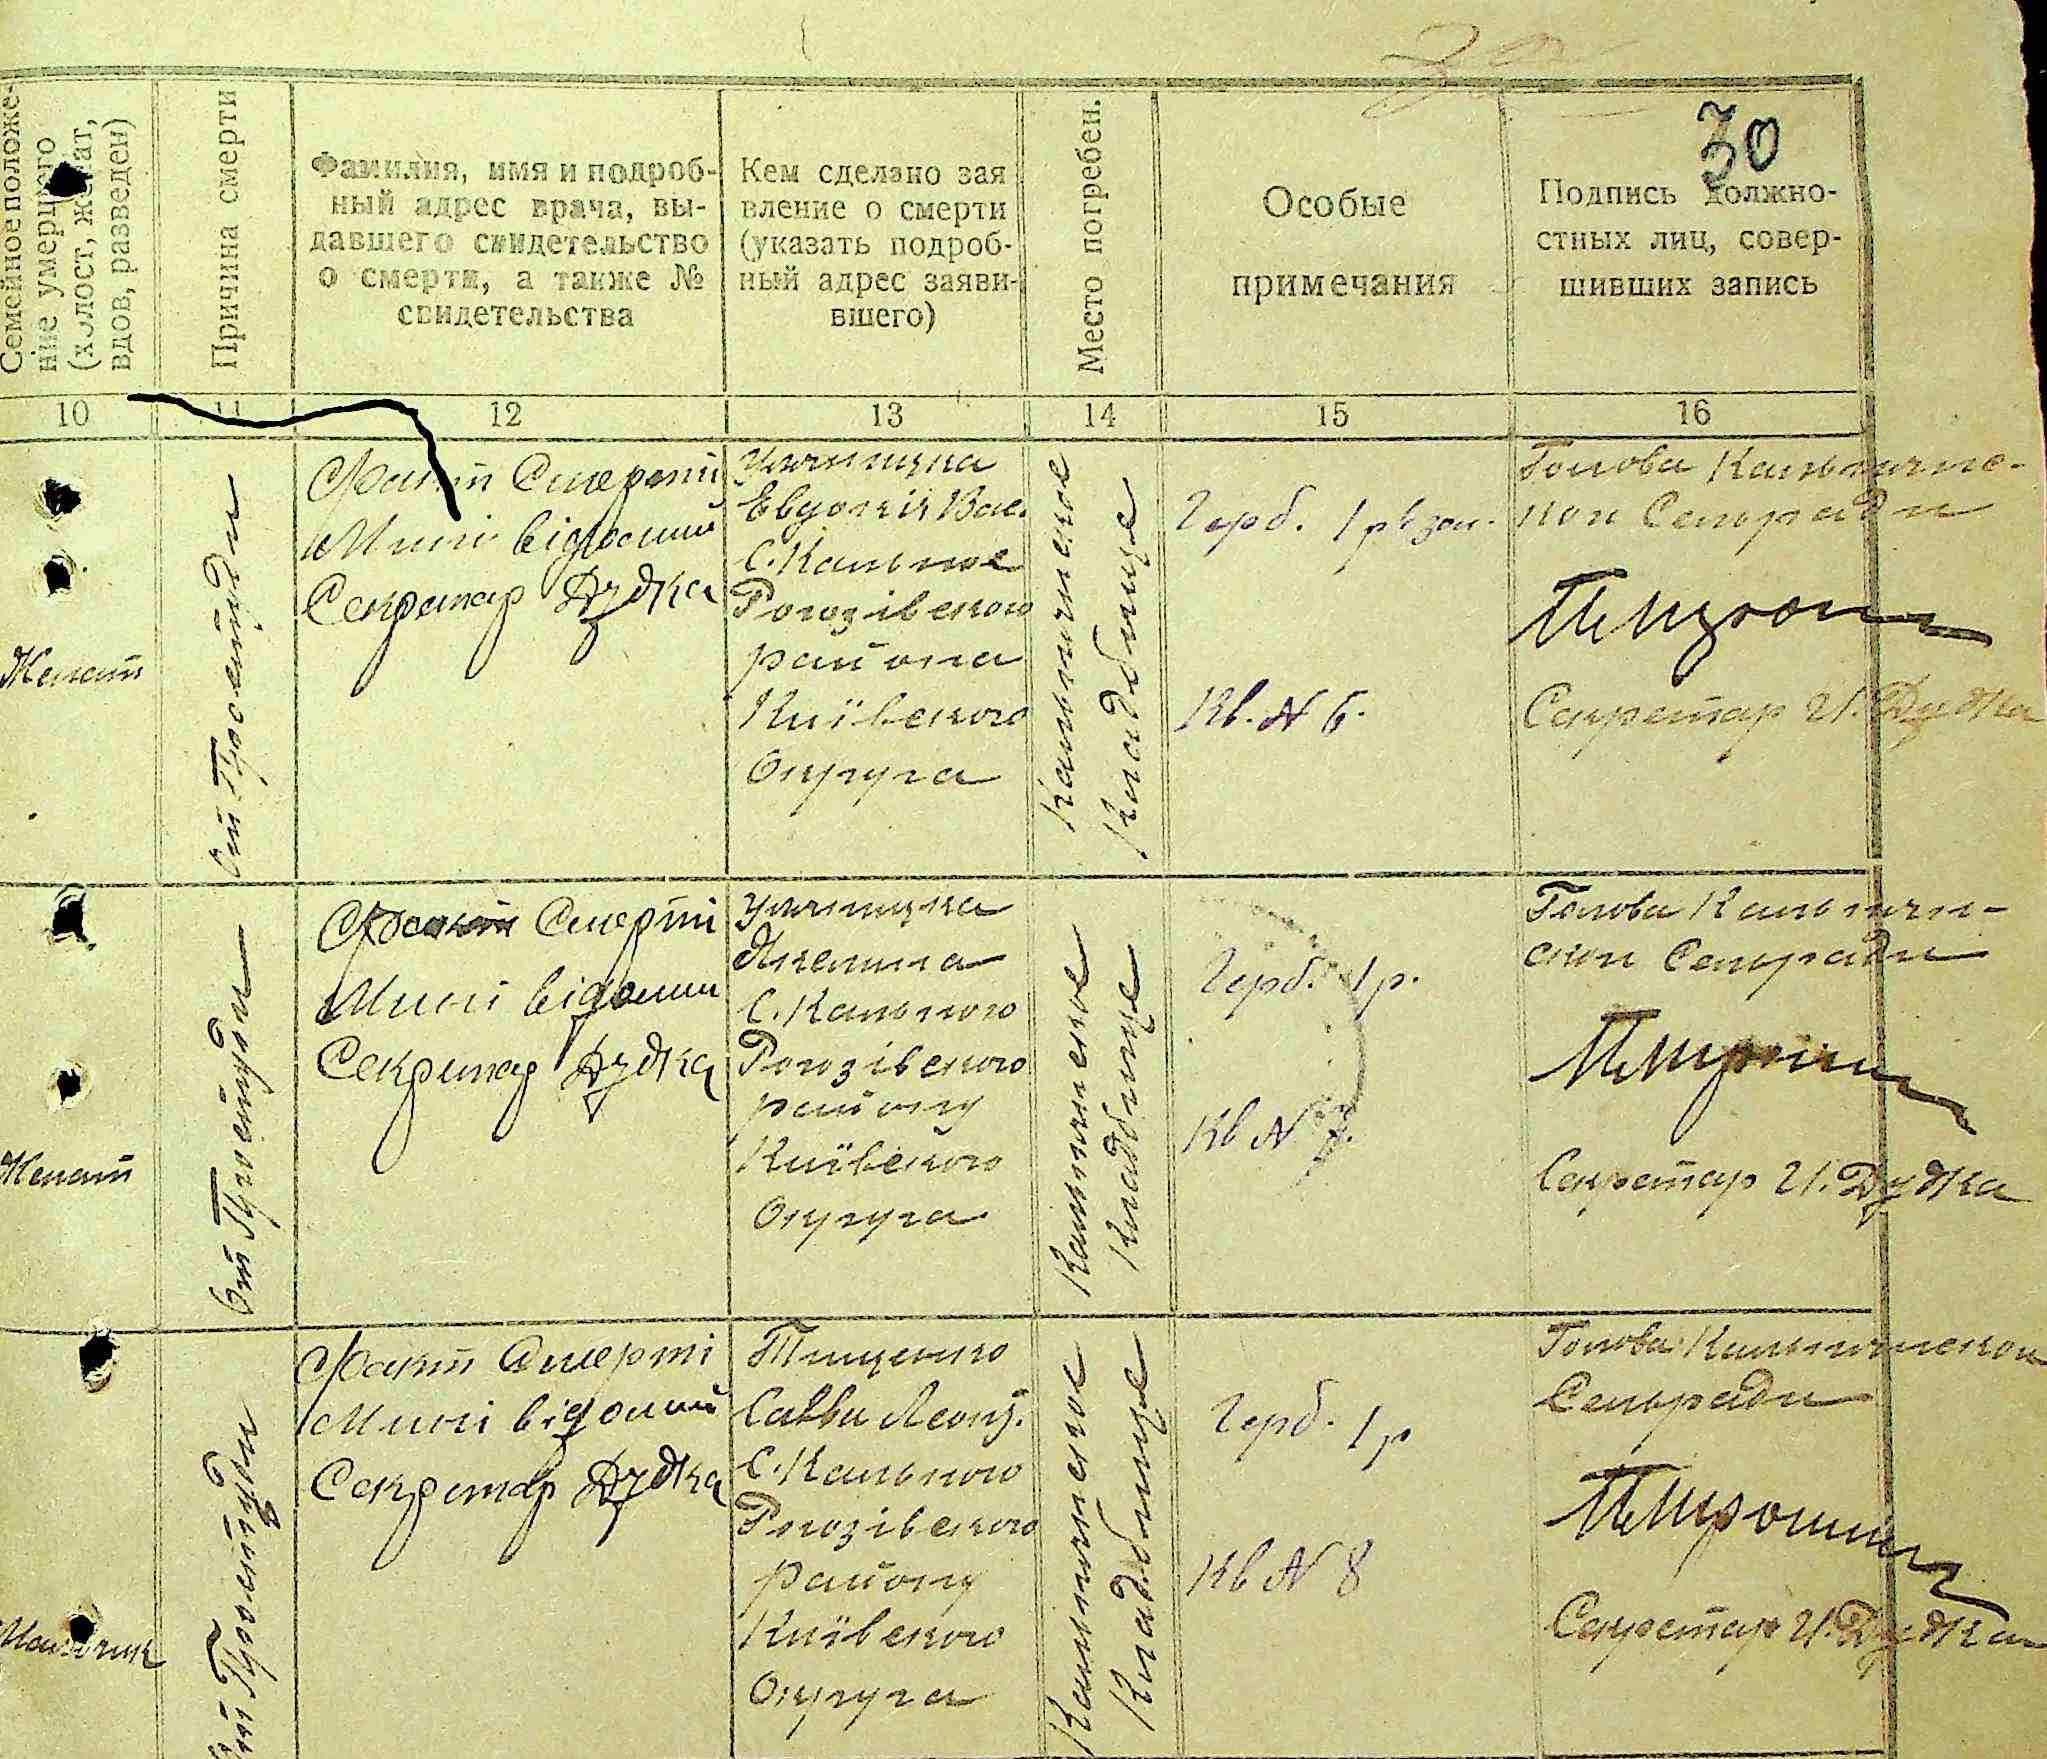 30
Семейное положе-
ние умершего
(холост, женат,
вдов, разведен)
Причина смерти
Фамилия, имя и подроб-
ный адрес врача, вы-
давшего свидетельство
о смерти, а также №
свидетельства
Кем сделано зая
вление о смерти
(указать подроб-
ный адрес заяви-
вшего)
Место погребен.
Особые
примечания
Подпись должно-
стных лиц, совер-
шивших запись
10
11
12
13
14
15
16
Женат
от Простуди
Факт Смерті
Мині відомий
Секретар Дудка
Евдокія Вас.
С. Кальное
Рогозівского
района
Київского
Округа
Кальниченское
Кладбище
Герб. 1 р
Кв. N 6.
Голова
Сельради
Секретар И. Дудка
Женат
от Простуди
Факт Смерті
Мині відомий
Секретар Дудка
С. Кального
Рогозівского
району
Київского
Округа
Кладбище
Герб. 1 р.
Кв N 7.
Голова
Сельради
Секретар И. Дудка
от Простуди
Факт Смерті
Мині відомий
Секретар Дудка
Тищенко
Савви Леонт.
С. Кального
Рогозівского
району
Київского
Округа
Кладбище
Герб. 1 р
Кв N 8
Голова
Сельради
Секретар И. Дудка